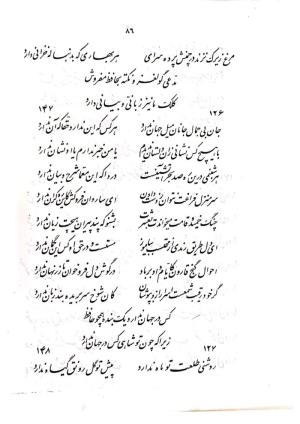 ۸۶
مرغ زیرک نزند در چمنش پرده سرای هر بهاری که بدنباله خزانی دارد
مدعی گو لغز و نکته بحافظ مفروش
کلک ما نیز زبانی و بیانی دارد
۱۲۶ ۱۴۷
جان بی جمال جانان میل جهان ندارد هر کس که این ندارد حقا که آن ندارد
با هیچ کس نشانی زان دلستان ندیدم یا من خبر ندارم یا او نشان ندارد
هر شبنمی درین ره صد بحر آتشینست دردا که این معما شرح و بیان ندارد
سرمنزل فراغت نتوان ز دست دادن ای ساروان فروکش کاین ره کران ندارد
چنگ خمیده قامت میخواندت بعشرت بشنو که پند پیران هیچت زیان ندارد
ای دل طریق رندی از محتسب بیاموز مستست و در حق او کس این گمان ندارد
احوال گنج قارون کایام داد بر باد در گوش دل فروخوان تا زر نهان ندارد
گر خود رقیب شمعست اسرار ازو بپوشان کان شوخ سربریده بند زبان ندارد
کس در جهان ندارد یک بنده همچو حافظ
زیرا که چون تو شاهی کس در جهان ندارد
۱۲۷ ۱۴۸
روشنی طلعت تو ماه ندارد پیش تو گل رونق گیاه ندارد